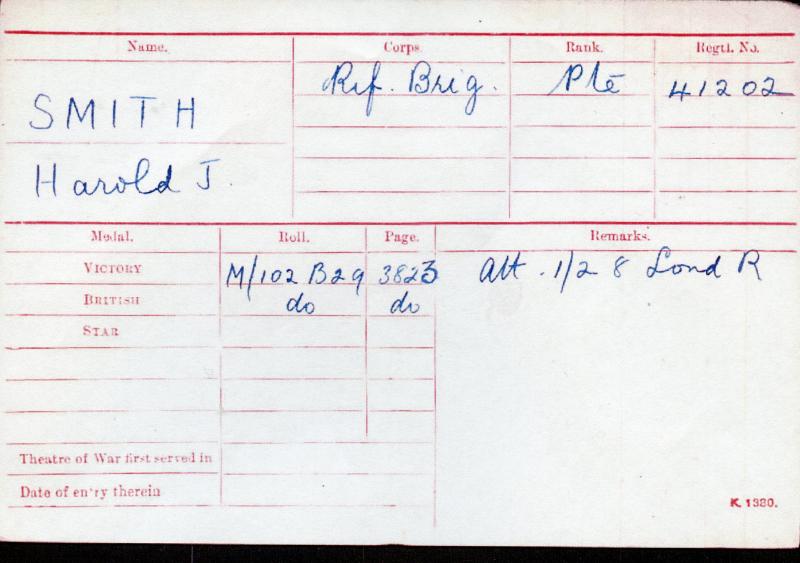 Name. Corps. Rank. Regtl. No.
SMITH Rif. Brig. Pte 41202
Harold J.
Medal. Roll. Page. Remarks.
VICTORY M/102 B29 3823 Att. 1/28 Lond R
BRITISH do do
STAR
Theatre of War first served in
Date of entry therein
K. 1380.